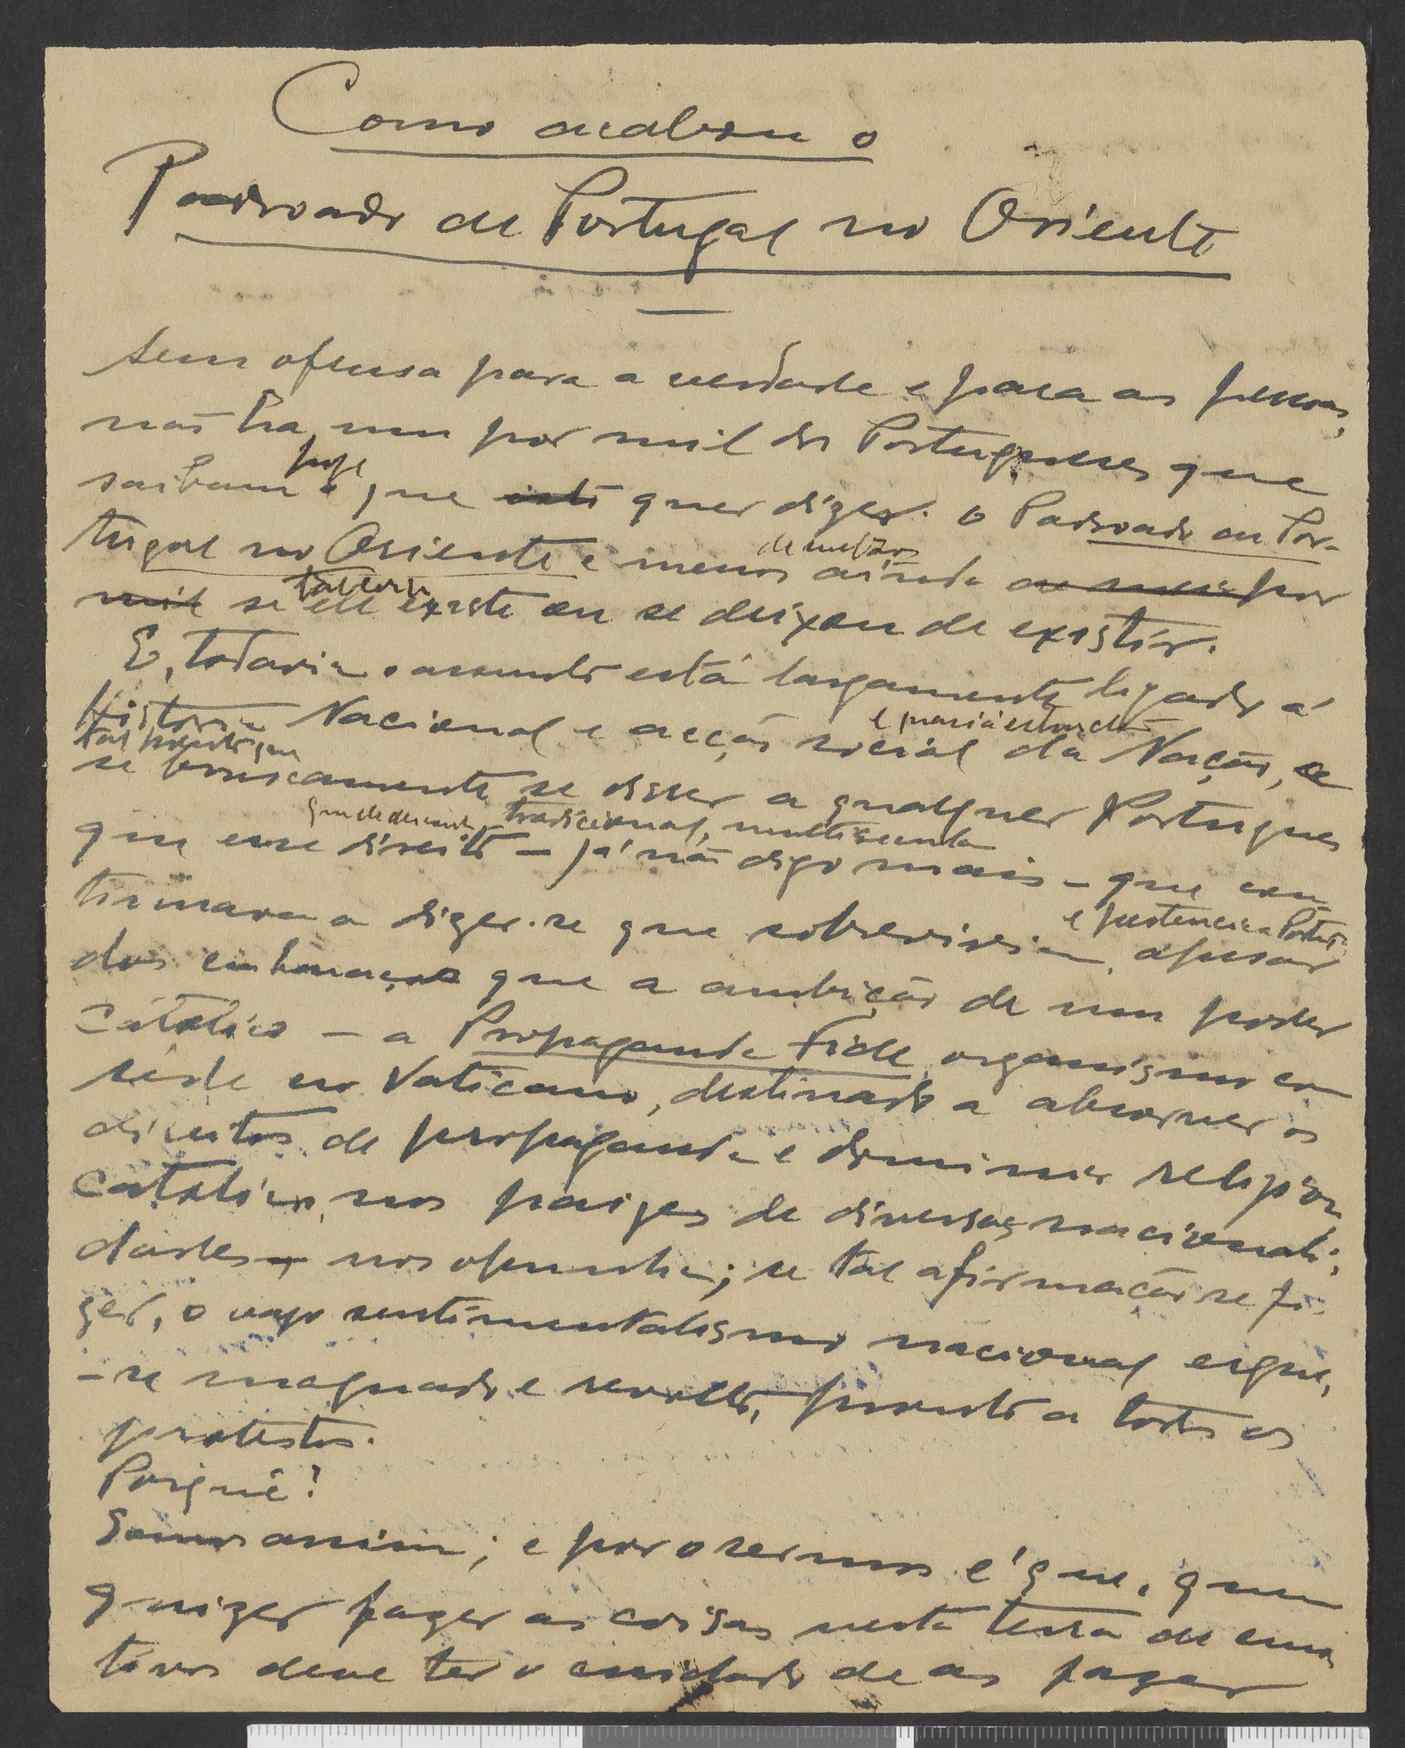 Como acabou o
Padroado de Portugal no Oriente
Sem ofensa para a verdade e para as pessoas,
não há um por mil dos Portugueses que
saibam hoje o que isto quer dizer: o Padroado de Por-
tugal no Oriente e menos ainda de metade ou meio por
mil se ele existe ou se deixou de existir.
E, todavia o assunto está largamente ligado á
Historia Nacional e acção social da Nação, e
se bruscamente se disser a qualquer Portugues
que esse direito tradicional, multisecular – já não digo mais – que con-
tinuava a dizer-se que sobrevivia e pertencia a Portugal, apesar
dos embaraços que a ambição de um poder
catolico – a Propaganda Fide, organismo com
séde no Vaticano, destinado a absorver os
direitos de propaganda e dominio religioso
catolico, nos paizes de diversas nacionali-
dades – nos opunha; se tal afirmação se fi-
zer, o vago sentimentalismo nacional ergue-
-se magoado e revolto, pronto a todos os
protestos.
Porquê?
Somos assim; e por o sermos é que, quem
quizer fazer as coisas nesta terra de emo-
tivos deve ter o cuidado de as fazer